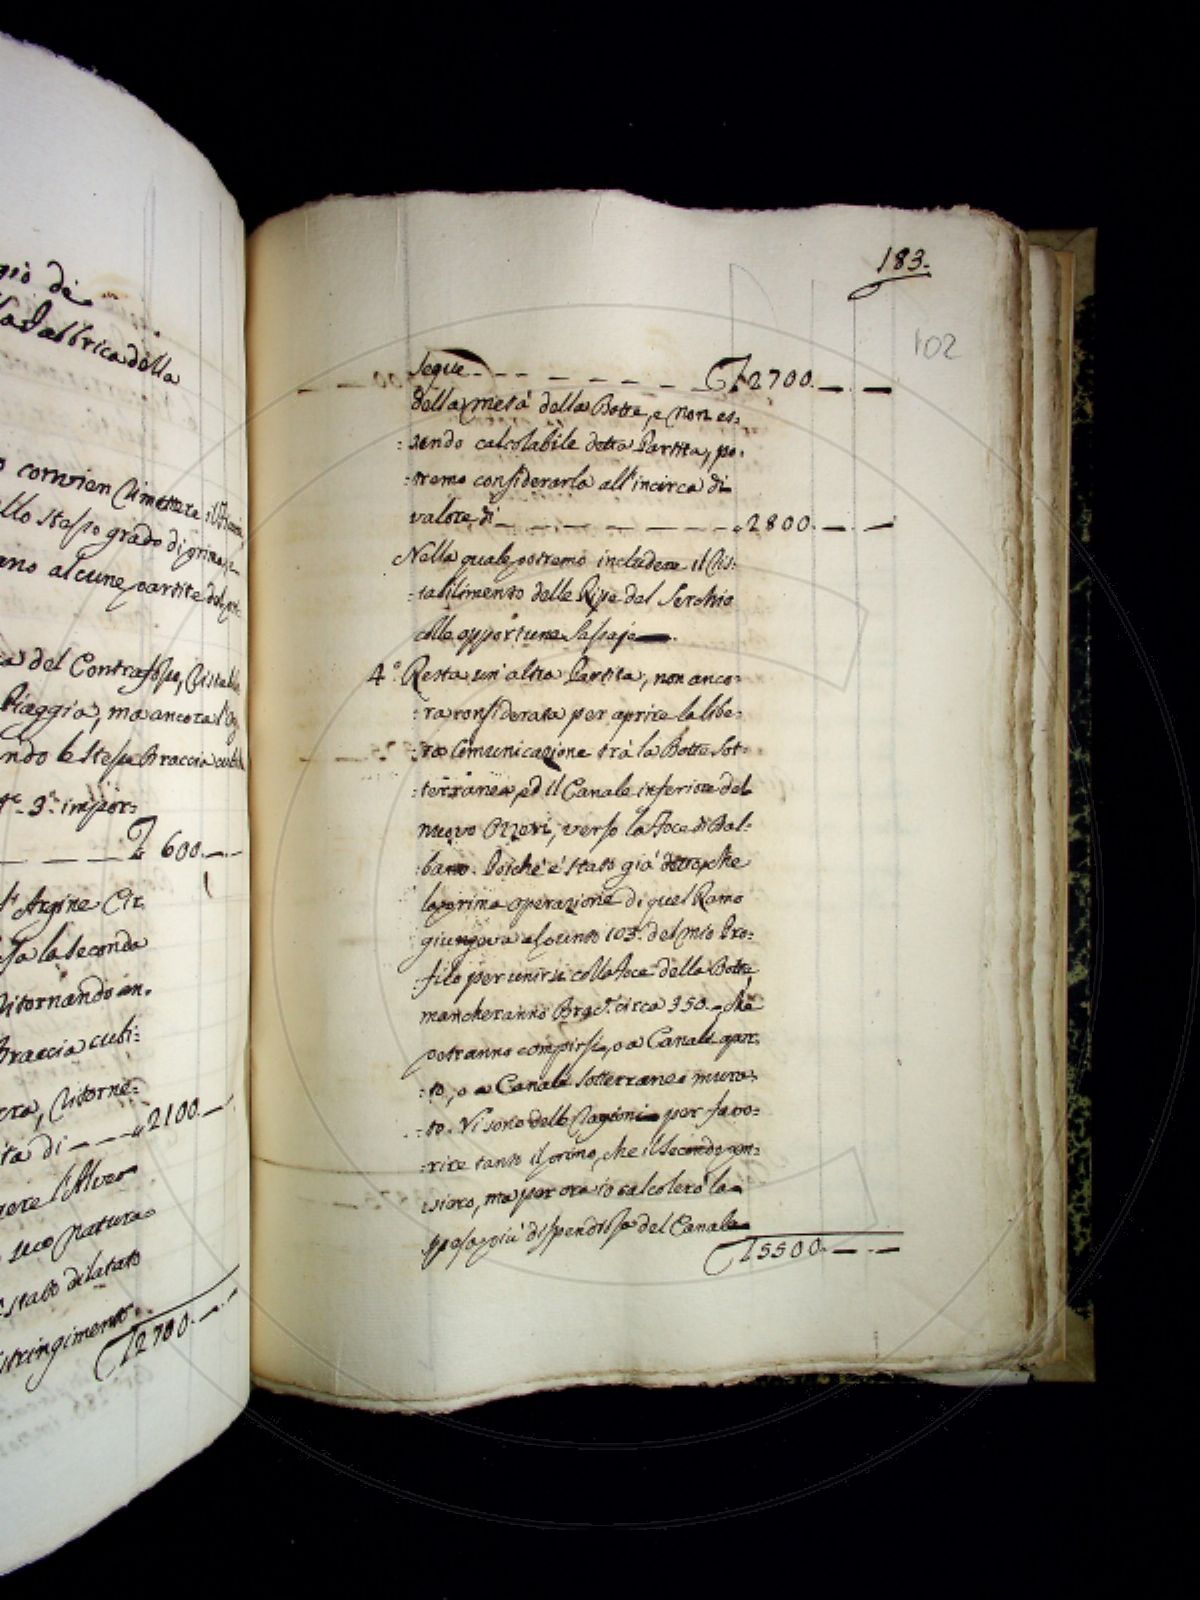 gio di
la Fabbrica della
convien rimettere il
llo stesso grado di prima, e
anno alcune partite del
del Contrafosso, ristabi
Piaggia, ma ancora l'
ndo le stesse Braccia
3.° impor:
₤ 600.
l'Argine Cir
la seconda
ritornando in.
Braccia cubi:
ritorne:
ta di - - - " 2100.
gere l'Alveo
sua natura
stato dilatato
stringimento.
₤ 2700.
183.
102
Segue - - - - - - ₤ 2700.
della metà della Botte, e non es:
:sendo calcolabile detta Partita, po:
:tremo considerarla all'incirca di
valore di - - - - - - " 2800.
Nella quale potremo includere il ris:
:tabilimento delle Ripe del Serchio
colle opportune Sassaje.
4.° Resta un'altra Partita, non anco:
:ra considerata per aprire la libe:
:ra Comunicazione trà la Botte Sot:
:terranea, ed il Canale inferiore del
nuovo Ozzeri, verso la Foce di Bal:
:bano. Poichè è stato già detto, che
la prima operazione di quel Ramo
giungeva al punto 103. del mio Pro:
:filo per unirsi colla foce della Botte
mancheranno Brac. circa 350. che
potranno compirsi, o a Canale aper:
:to, o a Canale Sotterraneo mura:
:to. Vi sono delle Ragioni per favo:
:rire tanto il primo, che il Secondo pen:
:siero, ma per ora io calcolerò la
spesa più dispendiosa del Canale
₤ 5500.